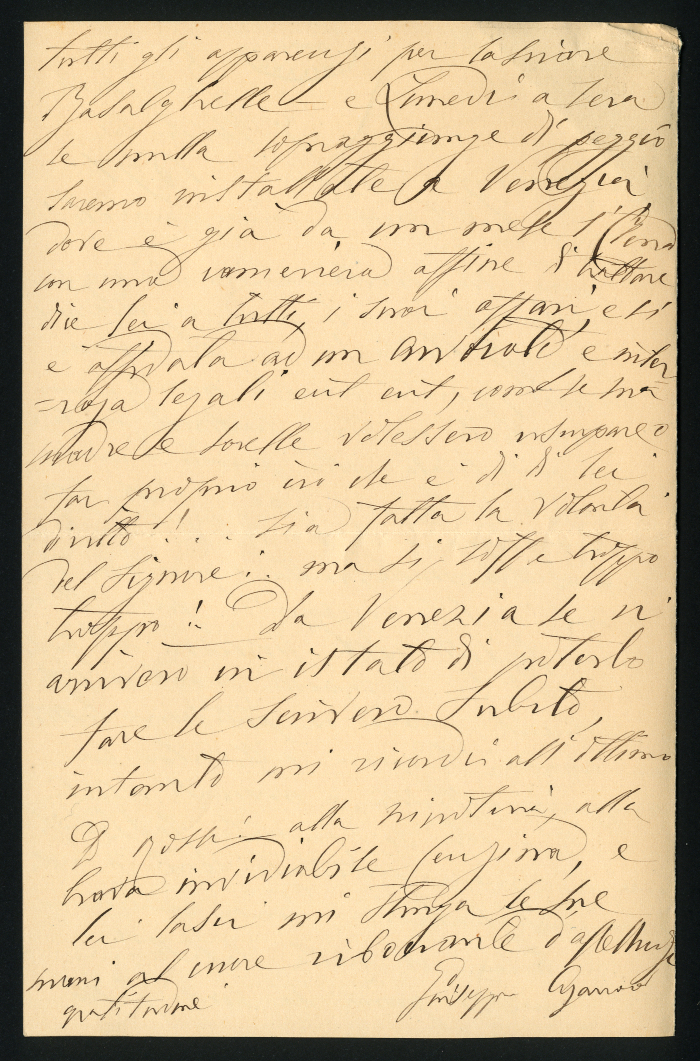 tutti gli apparecchi per lasciare
Basalghelle — e Lunedì a sera
se nulla sopraggiunge di peggio
saremo installate a Venezia
dove è già da un mese l'
con una cameriera affine di trattare
dice lei a tutti i suoi affari e si
è affidata ad un avvocato e inter
=roga legali ecct ecct, come se ma
madre e sorelle volessero usurpare o
far proprio ciò che è di di lei
diritto!... sia fatta la volontà
del Signore!.. ma si soffre troppo
troppo!! Da Venezia se vi
arriverò in istato di poterlo
fare le scriverò subito,
intanto mi ricordi all'ottimo
D alla nipotina, alla
brava invidiabile Cugina, e
lei lasci mi stringa le sue
mani al cuore riboccante d'affettuosa
gratitudine
Giuseppa